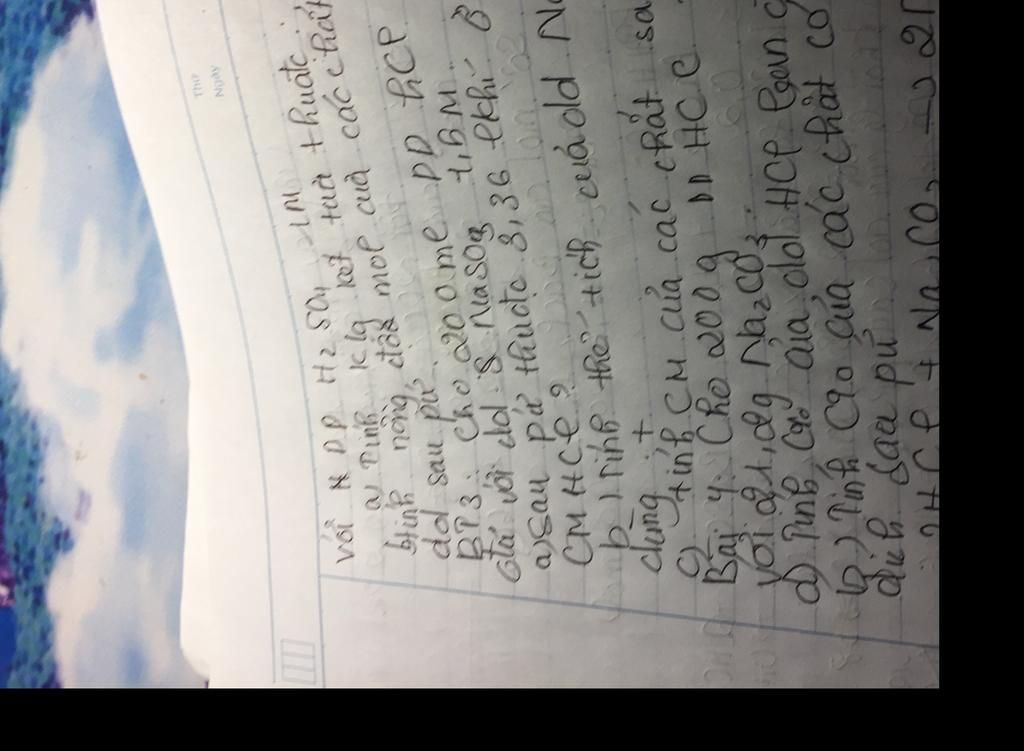 THỨ
NGÀY
với DD H2 SO4 1M thuđc
a) Tính klg kết tủa
b) tính nồng độ mol của các chất
dd sau pứ.
BT3: Cho 200 ml DD HCl
với dd Na2SO3 1,5M.
a) sau pứ thuđc 3,36 l khí ở
CM HCl?
b) Tính thể tích của dd
dùng
c) tính CM của các chất sa
Bài 4: Cho 200g DD HCl
với 21,2g Na2CO3.
a) Tính C% của dd HCl
b) Tính C% của các chất có
dịch sau pứ
2HCl + Na2CO3 → 2